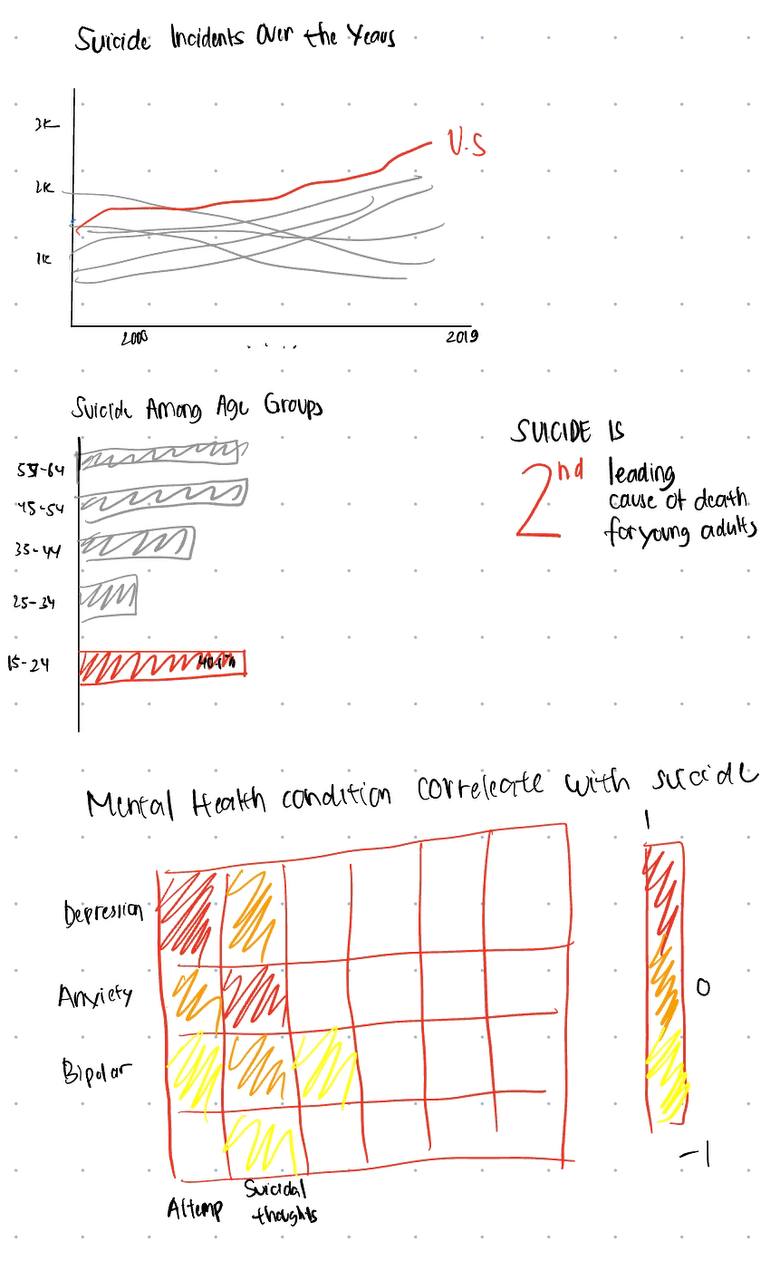 Suicide Incidents Over the Years
3K
2K
1K
U.S
2000
....
2019
Suicide Among Age Groups
55-64
45-54
35-44
25-34
15-24
SUICIDE IS
2nd leading
cause of death
for young adults
Mental Health condition correleate with suicide
1
0
-1
Depression
Anxiety
Bipolar
Attemp
Suicidal
thoughts